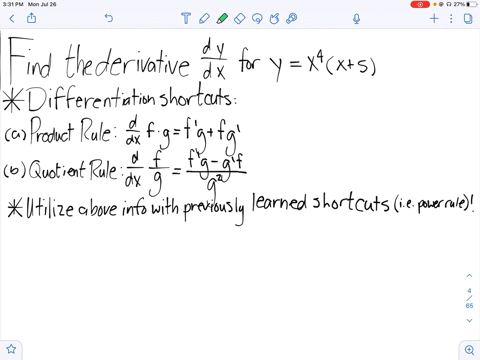 3:31 PM Mon Jul 26
27%
Find the derivative dy/dx for y = x⁴(x+5)
*Differentiation shortcuts:
(a) Product Rule: d/dx f·g = f'g + fg'
(b) Quotient Rule: d/dx f/g = (f'g - g'f)/g²
*Utilize above info with previously learned shortcuts (i.e. power rule)!
4
/
65